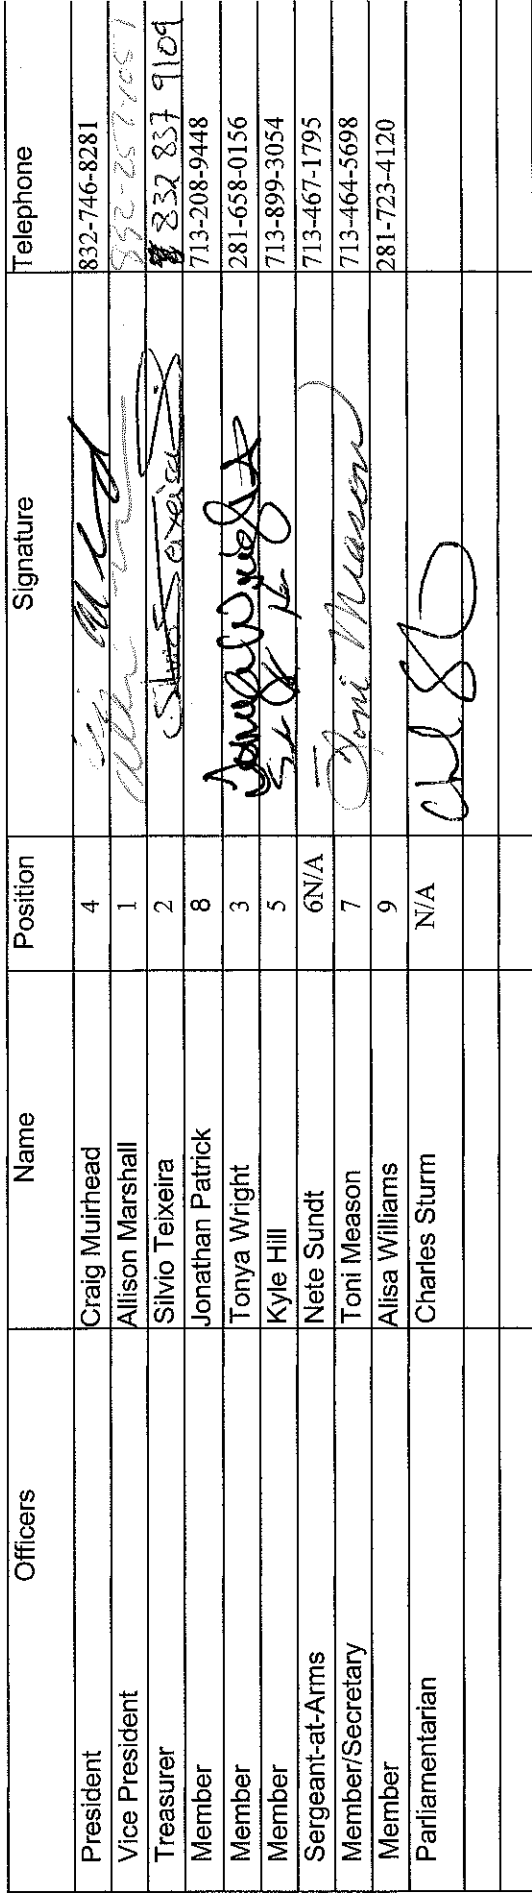 Officers Name Position Signature Telephone
President Craig Muirhead 4 832-746-8281
Vice President Allison Marshall 1
Treasurer Silvio Teixeira 2 Silvio Teixeira 832 837 9109
Member Jonathan Patrick 8 713-208-9448
Member Tonya Wright 3 Tonya Wright 281-658-0156
Member Kyle Hill 5 713-899-3054
Sergeant-at-Arms Nete Sundt 6N/A 713-467-1795
Member/Secretary Toni Meason 7 Toni Meason 713-464-5698
Member Alisa Williams 9 281-723-4120
Parliamentarian Charles Sturm N/A